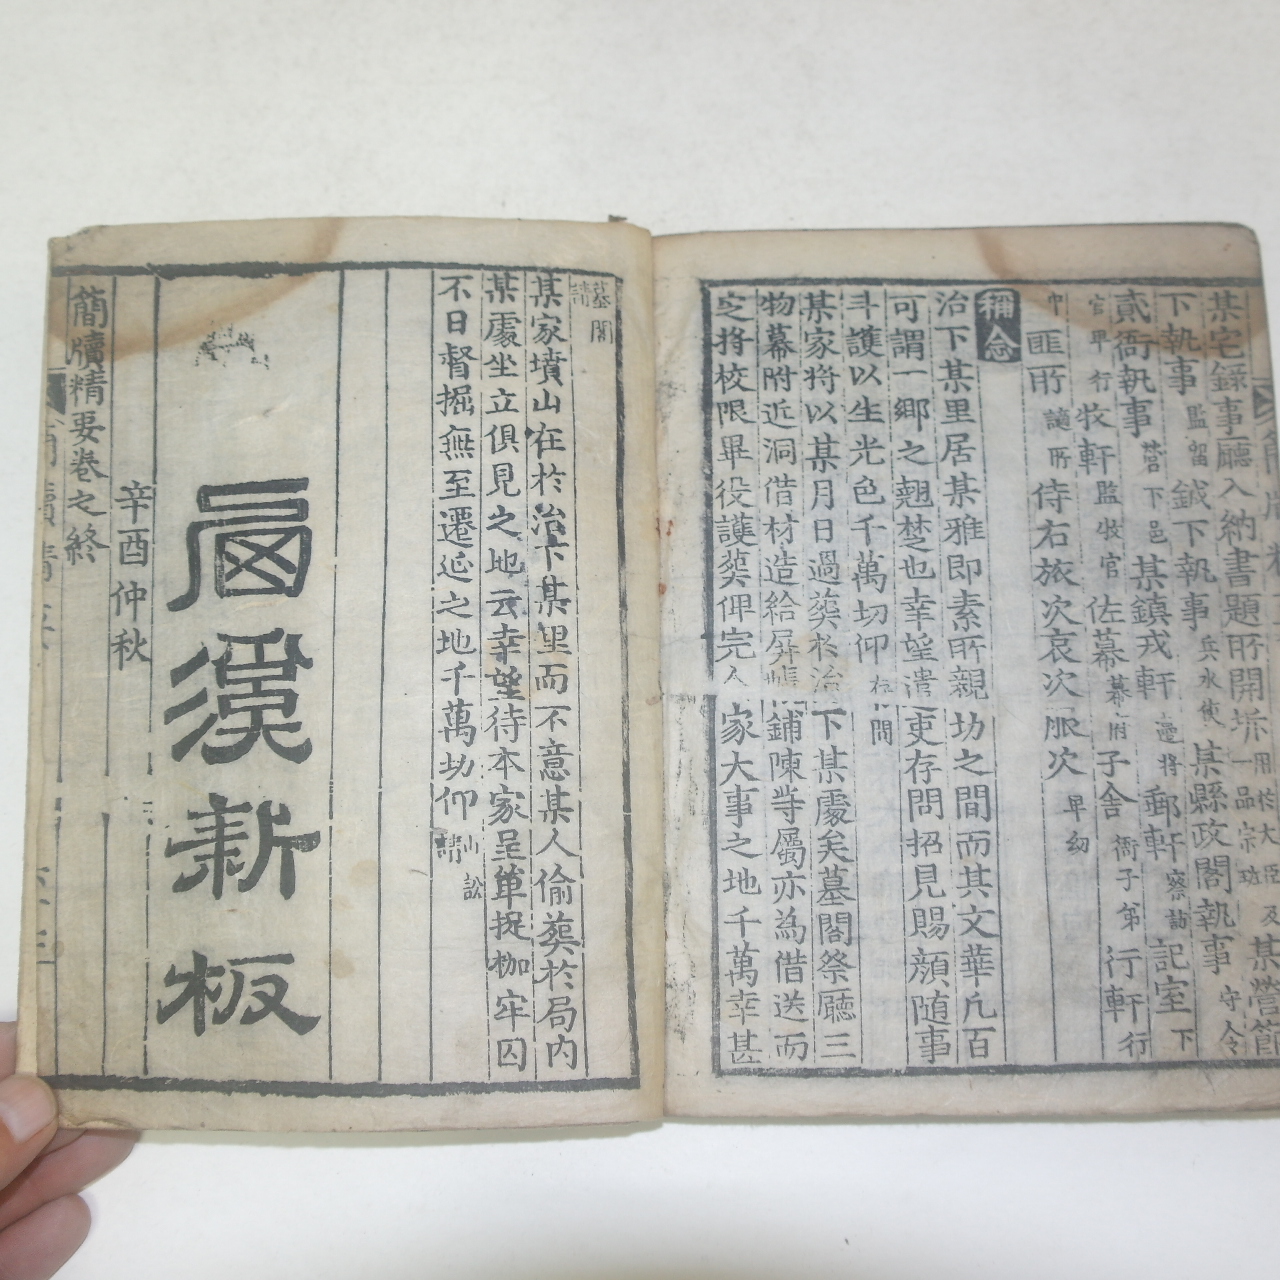 某宅錄事廳入納書題所開坼用於大臣及一品宗班某營節
下執事監留鉞下執事兵水使某縣政閣執事守令
貳衙執事營下邑某鎮戎軒邊將郵軒察訪記室下
官卑行牧軒監牧官佐幕幕府子舍衙子弟行軒行
中匪所謫所侍右旅次哀次服次卑幼
稱念
治下某里居某雅即素所親切之間而其文華凡百
可謂一鄉之翹楚也幸望遣吏存問招見賜顏隨事
斗護以生光色千萬切仰存問
某家將以某月日過葬於治下某處矣墓閣祭廳三
物幕附近洞借材造給屏帳鋪陳等屬亦為借送而
定將校限畢役護葬俾完人家大事之地千萬幸甚
墓閣請
某家墳山在於治下某里而不意某人偷葬於局內
某處坐立俱見之地云幸望待本家呈單捉枷牢囚
不日督掘無至遷延之地千萬切仰山訟請
新板
辛酉仲秋
簡牘精要卷之終